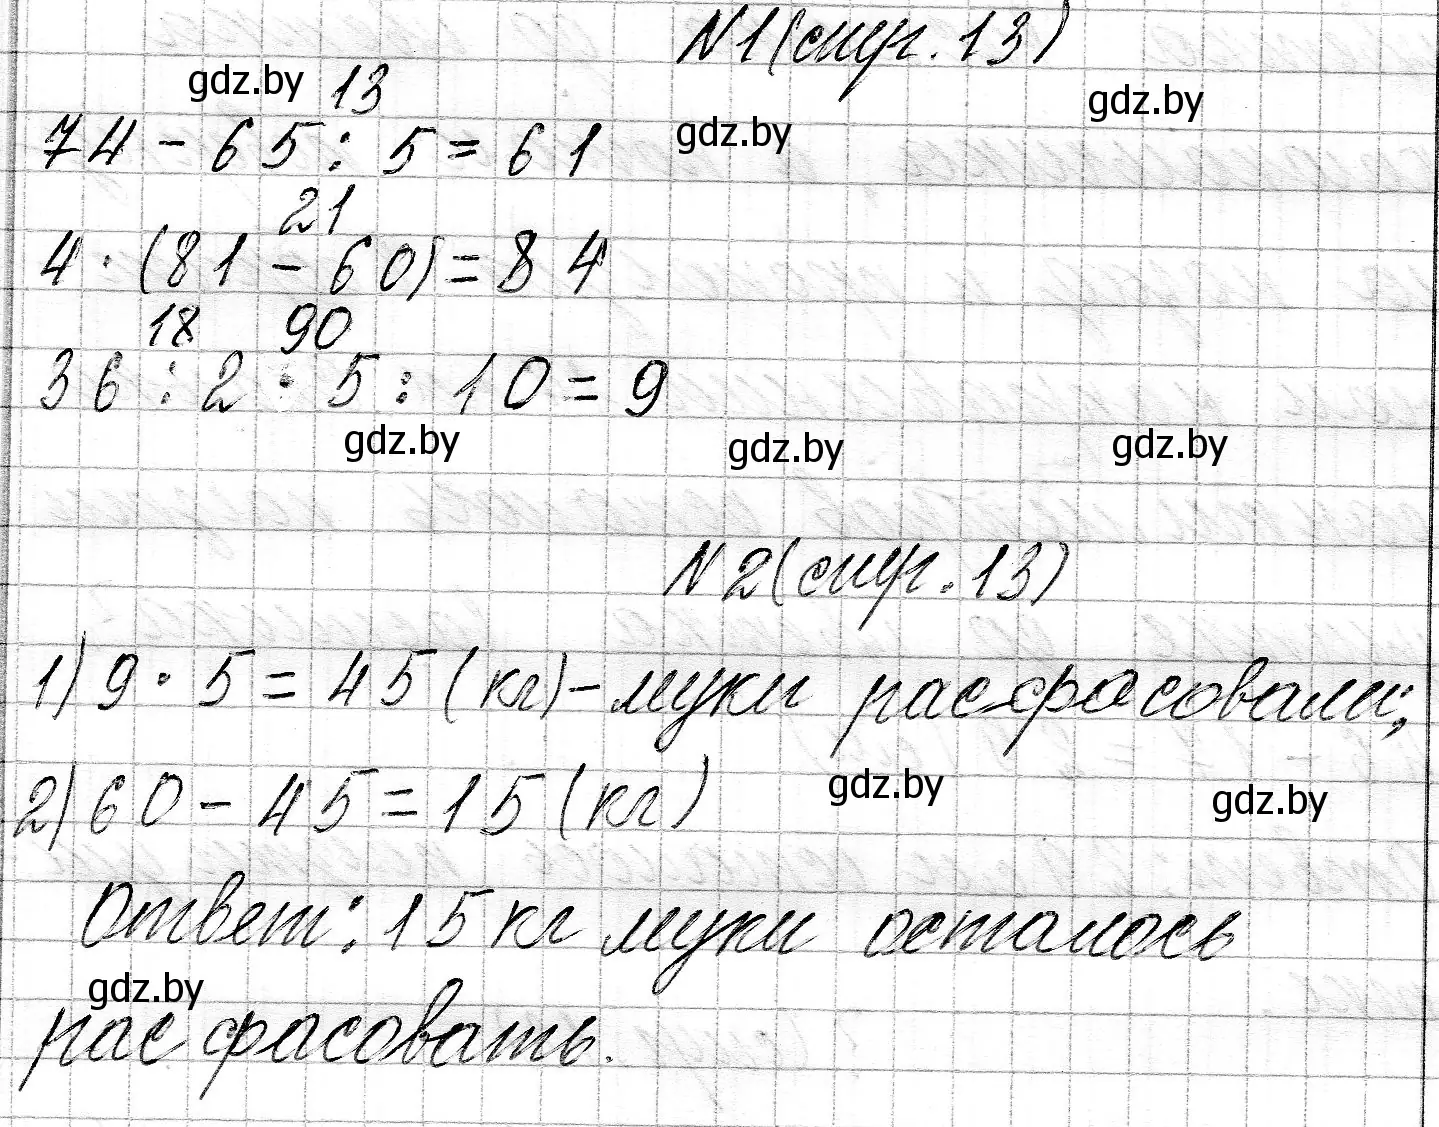 N1(стр. 13)
gdz.by 13 gdz.by
74 - 65 : 5 = 61 gdz.by
21
4 · (81 - 60) = 84
18 90
36 : 2 · 5 : 10 = 9
gdz.by gdz.by gdz.by
N2(стр. 13)
1) 9 · 5 = 45 (кг) - муки расфасовали;
2) 60 - 45 = 15 (кг) gdz.by gdz.by
Ответ: 15 кг муки осталось
gdz.by
расфасовать.